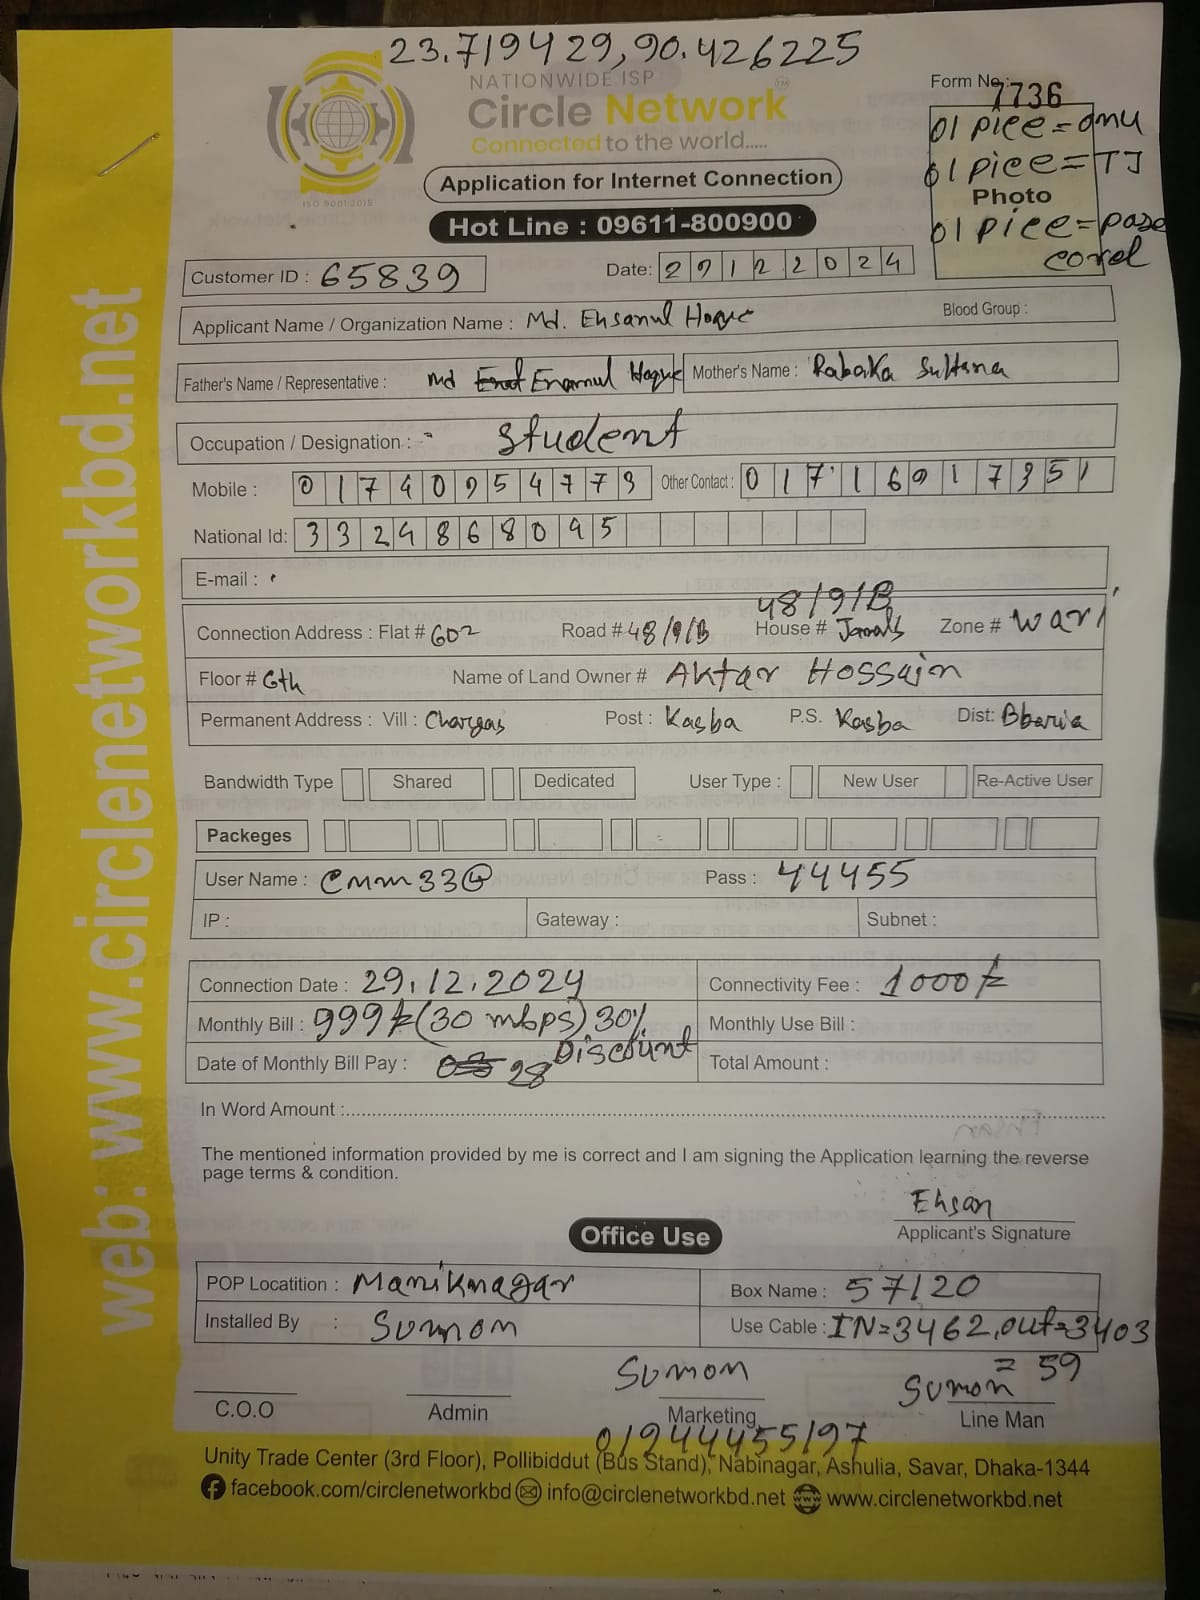 23.719429,90.426225
NATIONWIDE ISP
Circle Network
Connected to the world.....
ISO 9001:2015
Form No: 7736
01 pice = onu
01 pice = TJ
Photo
01 pice =
Application for Internet Connection
Hot Line : 09611-800900
Customer ID : 65839
Date: 29122024
Applicant Name / Organization Name : Md. Ehsanul Hoque
Blood Group :
Father's Name / Representative : Md Enamul Hoque Mother's Name : Rabaka Sultana
Occupation / Designation : - Student
Mobile : 01740954773 Other Contact : 01716917351
National Id: 3324868095
E-mail :
48/9/B
Connection Address : Flat # 602 Road # 48/9/B House # Zone # wari
Floor # 6th Name of Land Owner # Aktar Hossain
Permanent Address : Vill : Chargas Post : Kasba P.S. Kasba Dist: Bbaria
Bandwidth Type Shared Dedicated User Type : New User Re-Active User
Packeges
User Name : cmm33@ Pass : 44455
IP : Gateway : Subnet :
Connection Date : 29.12.2024 Connectivity Fee : 1000/=
Monthly Bill : 999/= (30 mbps) 30% Monthly Use Bill :
Discount
Date of Monthly Bill Pay : 28 Total Amount :
In Word Amount :
The mentioned information provided by me is correct and I am signing the Application learning the reverse
page terms & condition.
Ehsan
Applicant's Signature
Office Use
POP Locatition : Maniknagar Box Name : 57120
Installed By : Sumon Use Cable : IN=3462, out=3403
= 59
Sumon Sumon
C.O.O Admin Marketing Line Man
01944455197
Unity Trade Center (3rd Floor), Pollibiddut (Bus Stand), Nabinagar, Ashulia, Savar, Dhaka-1344
facebook.com/circlenetworkbd info@circlenetworkbd.net www.circlenetworkbd.net
web: www.circlenetworkbd.net